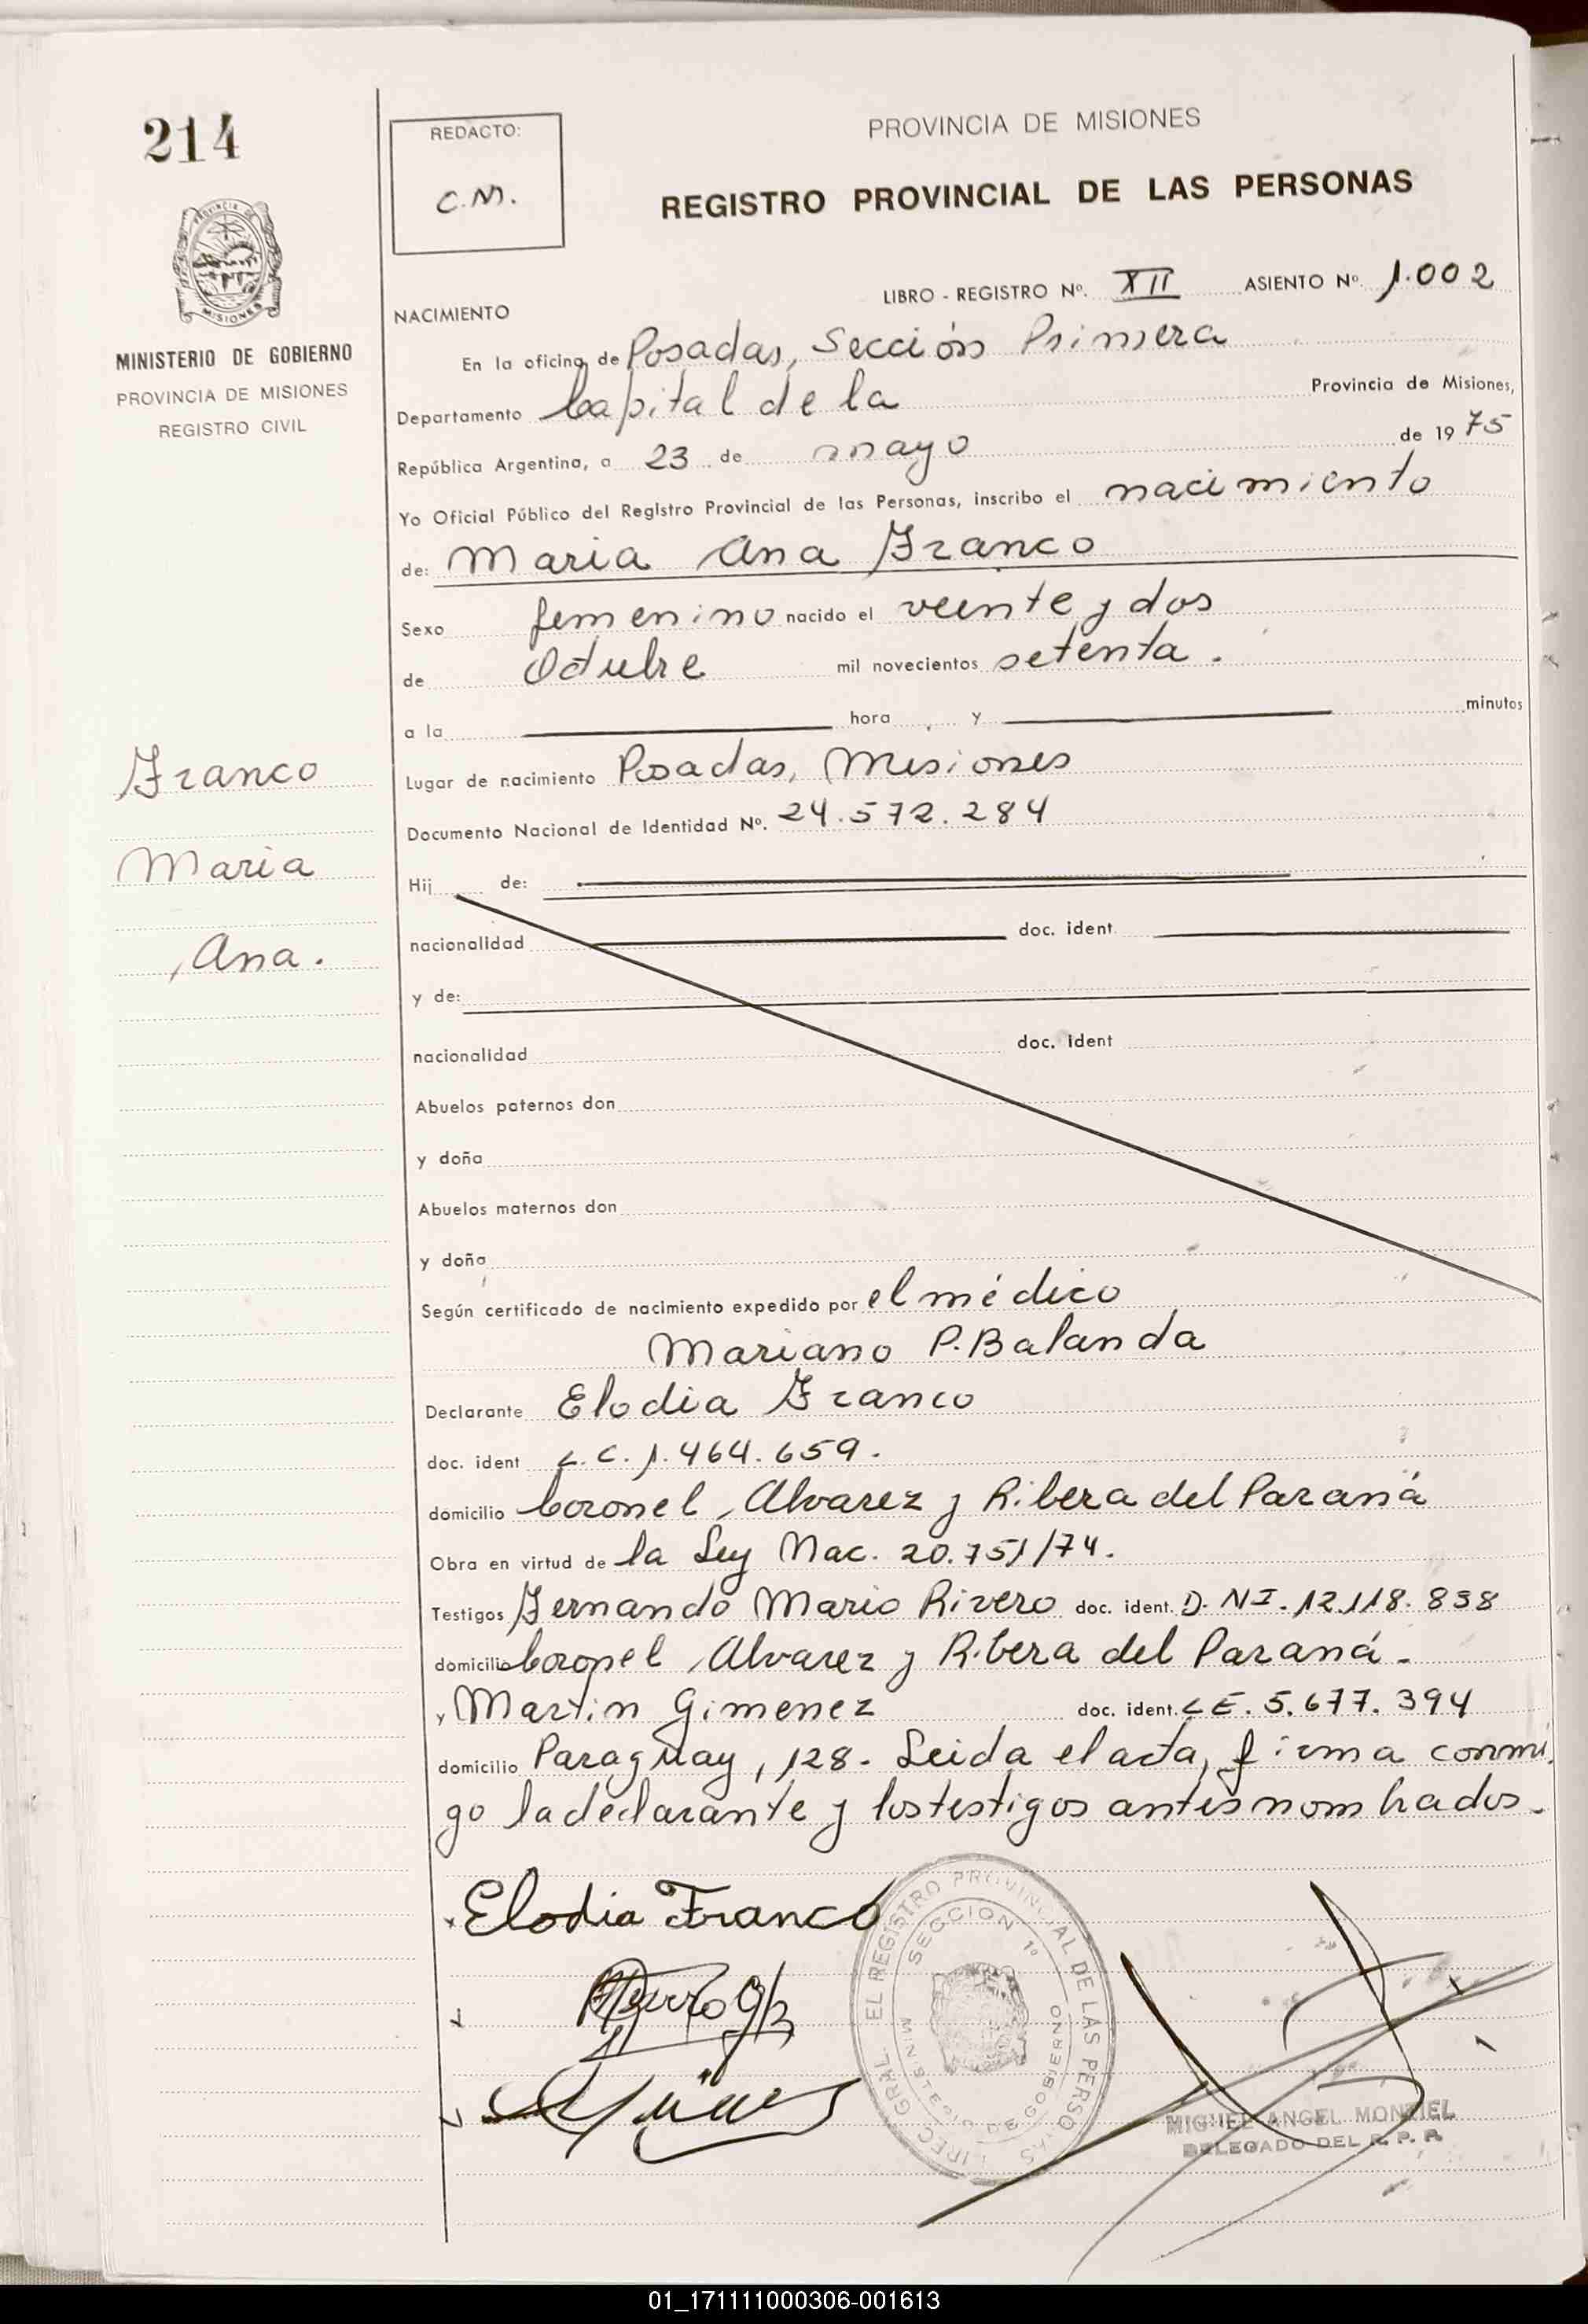 214
REDACTO:
C.M.
PROVINCIA DE MISIONES
REGISTRO PROVINCIAL DE LAS PERSONAS
PROVINCIA DE
MISIONES
MINISTERIO DE GOBIERNO
PROVINCIA DE MISIONES
REGISTRO CIVIL
LIBRO - REGISTRO Nº. XII ASIENTO Nº. 1.002
NACIMIENTO
En la oficina de Posadas, Sección Primera
Departamento Capital de la Provincia de Misiones,
República Argentina, a 23 de mayo de 1975
Yo Oficial Público del Registro Provincial de las Personas, inscribo el nacimiento
de: Maria Ana Franco
Sexo femenino nacido el veinte y dos
de Octubre mil novecientos setenta.
a la hora y minutos
Franco
Maria
Ana.
Lugar de nacimiento Posadas, Misiones
Documento Nacional de Identidad Nº. 24.572.284
Hij de:
nacionalidad doc. ident
y de:
nacionalidad doc. ident
Abuelos paternos don
y doña
Abuelos maternos don
y doña
Según certificado de nacimiento expedido por el médico
Mariano P. Balanda
Declarante Elodia Franco
doc. ident L.C. 1.464.659.
domicilio Coronel Alvarez y Ribera del Paraná
Obra en virtud de la Ley Nac. 20.751/74.
Testigos Fernando Mario Rivero doc. ident. D.NI. 12.118.838
domicilio Coronel Alvarez y Ribera del Paraná.
y Martin Gimenez doc. ident. LE. 5.677.394
domicilio Paraguay, 128- Leida el acta, firma conmi
go la declarante y los testigos antes nombrados.
Elodia Franco
EL REGISTRO PROVINCIAL DE LAS PERSONAS
SECCION 1º
MINISTERIO DE GOBIERNO
MIGUEL ANGEL MONTIEL
DELEGADO DEL R. P. P.
01_171111000306-001613